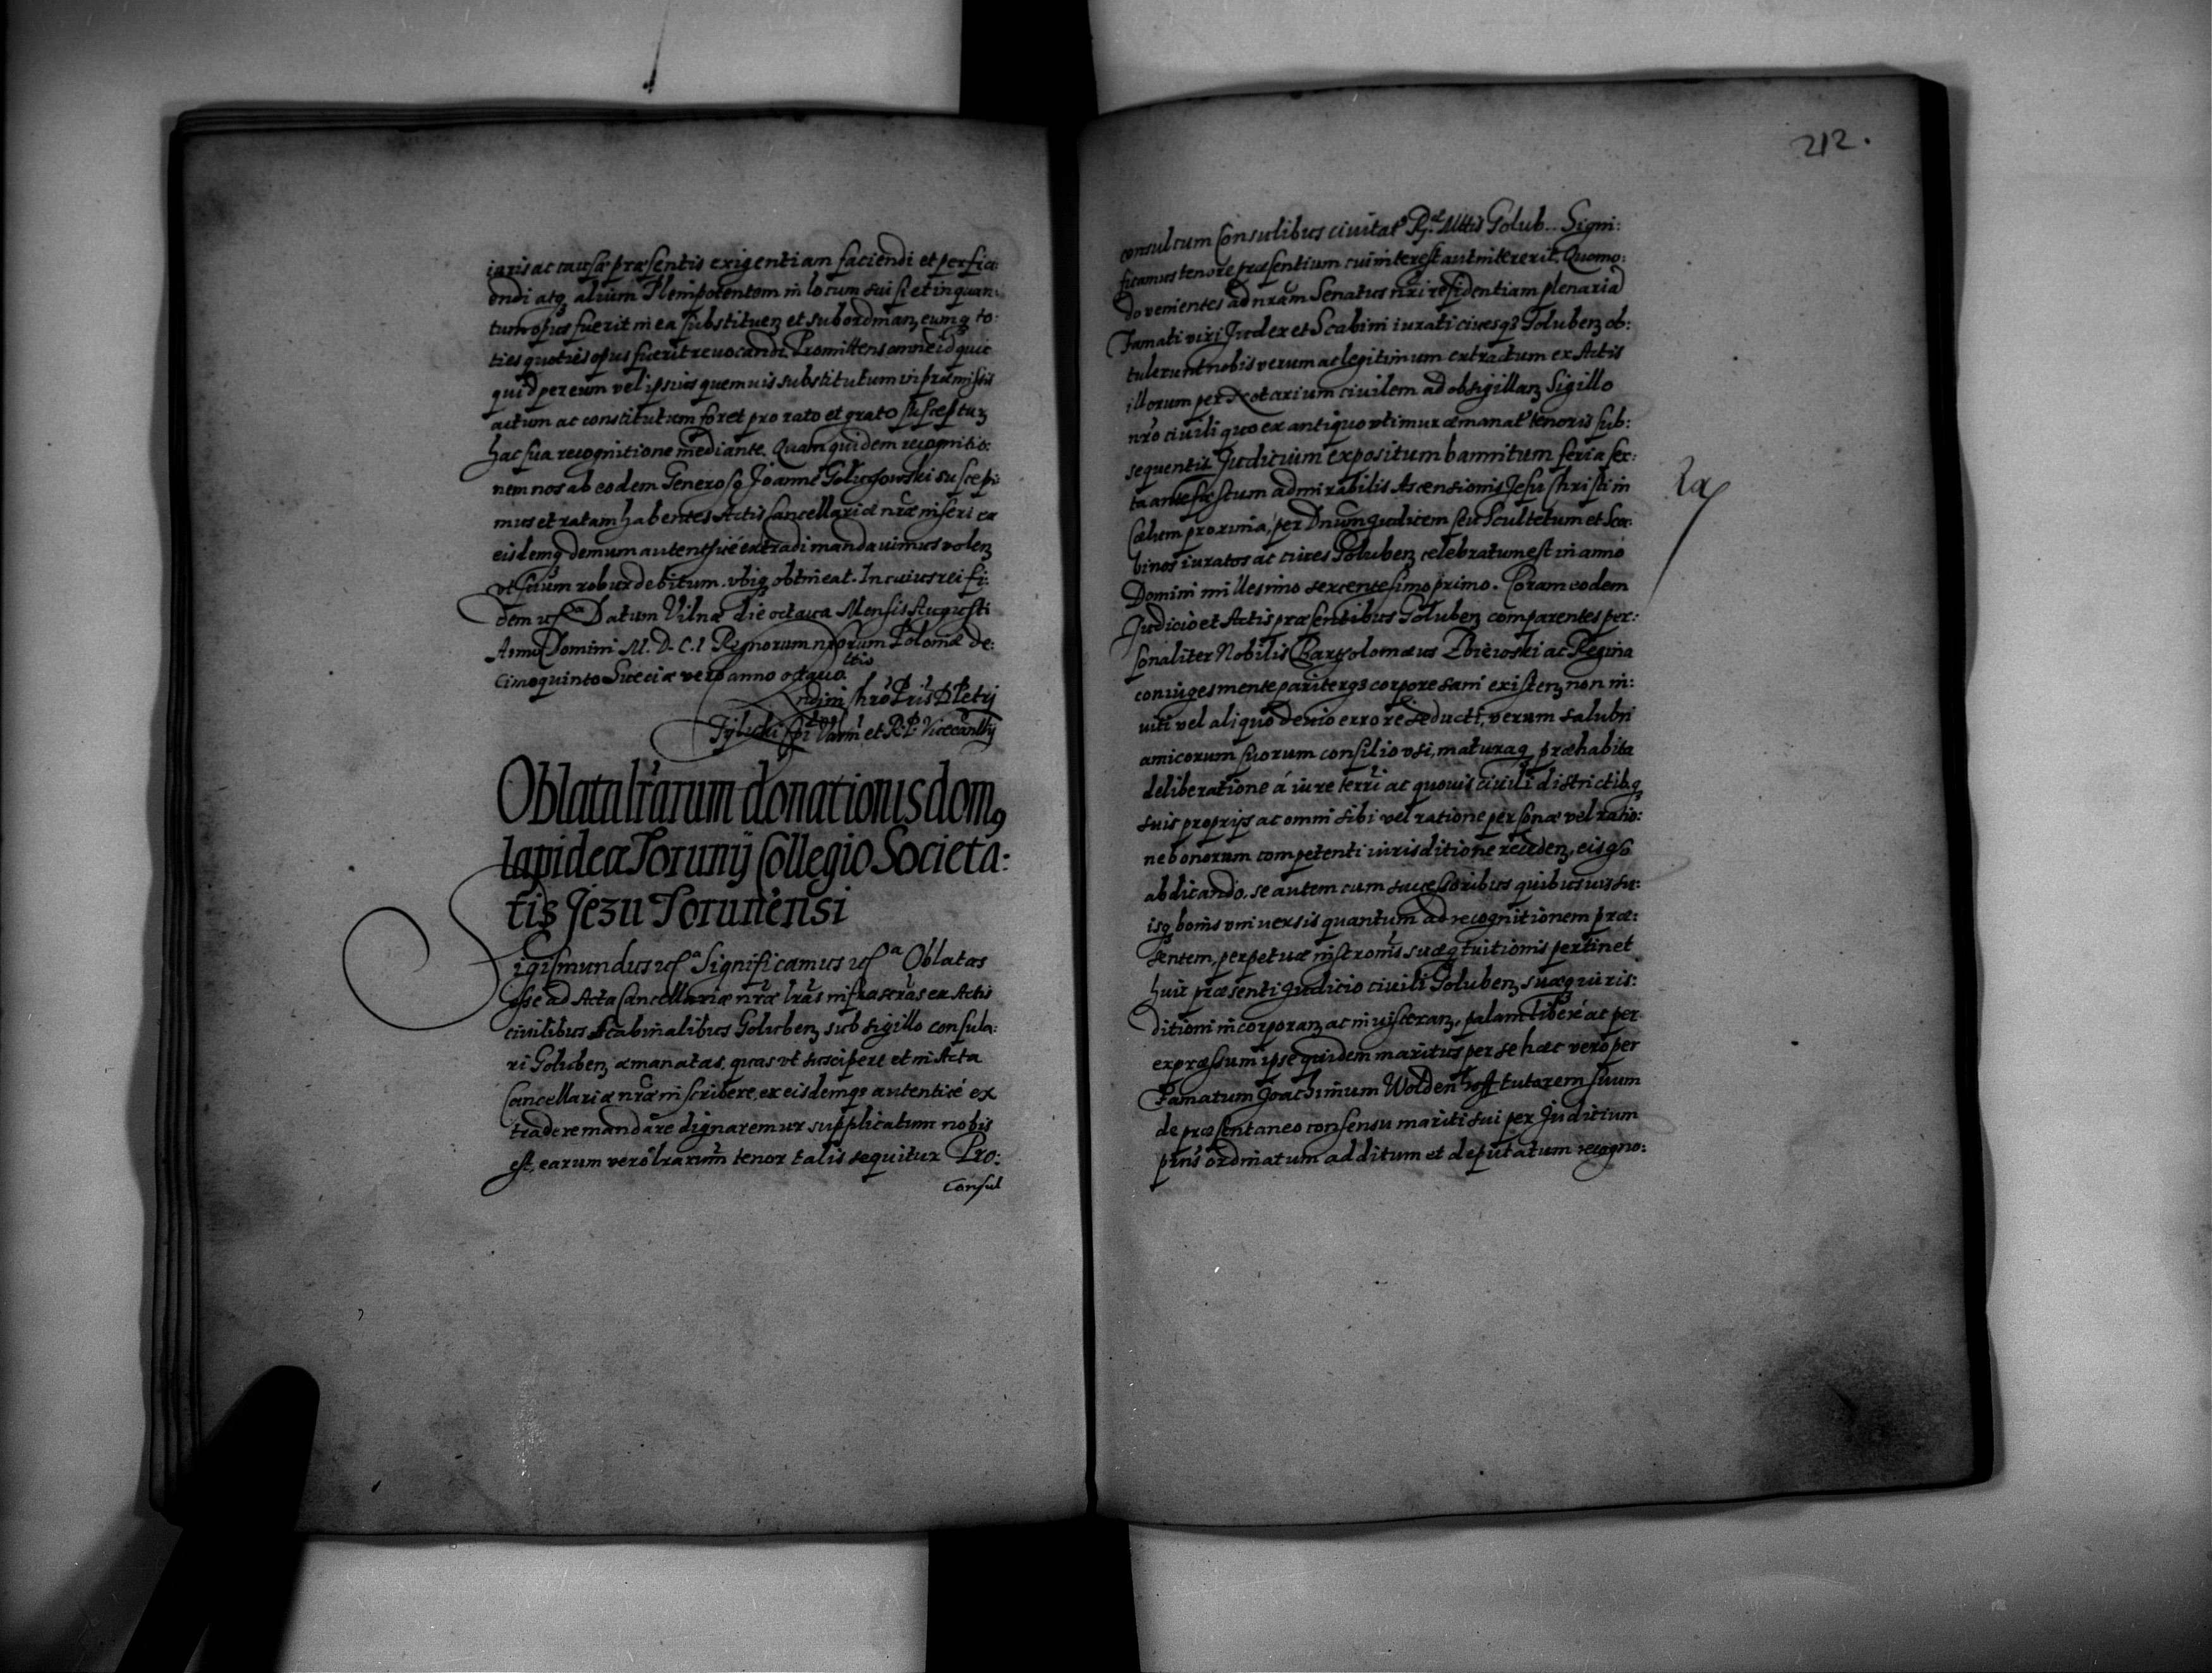 iuris ac causæ præsentis exigentiam faciendi et perfici
endi atq; alium Plenipotentem in locum sui si et in quan:
tum opus fuerit in ea substituen et subordinan, eumq to:
ties quoties opus fuerit revocandi. Promittens omne id quic
quid per eum vel ipsius quemvis substitutum in præmissis
actum ac constitutum foret pro rato et grato susceptur
hac sua recognitione mediante. Quam quidem recognitio:
nem nos ab eodem Generoso Joanne suscepi:
mus et ratam habentes Actis Cancellariæ nræ inseri ex
eisdemq demum autentice extradi mandavimus volen
vt suum robur debitum vbiq obtineat. In cuius rei fi:
dem &c Datum Vilnæ die octava Mensis Augusti
Anno Domini M.D.C.I Regnorum nrorum Poloniæ de:
cimoquinto Sueciæ vero anno octavo.
Petri
Tylicki et R.P. Vicecanllrij
Oblata lrarum donationis dom9
lapideæ Torunij Collegio Societa:
tis Jezu Torunensi
Sigismundus &c Significamus &c Oblatas
esse ad Acta Cancellariæ nræ lras infrascras ex Actis
civilibus Scabinalibus Goluben sub sigillo consula:
ri Goluben æmanatas, quas vt suscipere et in Acta
Cancellariæ nræ inscribere, ex eisdemq3 autenticé ex
tradere mandare dignaremur supplicatum nobis
est, earum vero lrarum tenor talis sequitur Pro:
consul
212.
consul cum Consulibus civitat Golub.. Signi:
ficamus tenore præsentium cui interest aut intererit. Quomo:
do venientes ad nram Senatus nri residentiam plenaria
Famati viri Judex et Scabini iurati civesq3 Goluben ob:
tulerunt nobis verum ac legitimum extractum ex Actis
illorum per Notarium civilem ad obsigillan Sigillo
nro civili quo ex antiquo vtimur æmanat tenoris sub:
sequentis Judicium expositum bannitum feria sex:
ta ante festum admirabilis Ascensionis Jesu Christi in
Cælum proxima, per Dnum Judicem seu Scultetum et Sca:
binos iuratos ac cives Goluben celebratum est in anno
Domini millesimo sexcentesimo primo. Coram eodem
Judicio et Actis præsentibus Goluben comparentes per:
sonaliter Nobilis Bartholomæus ac Regina
coniuges mente pariterq3 corpore sani existen, non in:
uiti vel aliquo devio errore seducti, verum salubri
amicorum suorum consilio vsi, maturaq præhabita
deliberatione á iure terri ac quovis civili districtibq
suis proprijs ac omni sibi vel ratione personæ vel ratio:
ne bonorum competenti iurisditione receden, eisq3
abdicando, se autem cum successoribus quibusvis su:
isq bonis vniversis quantum ad recognitionem præ:
sentem, perpetuæ suæq tuitionis pertinet
huic præsenti Judicio civili Goluben suæq iuris:
ditioni incorporan ac inuisceran, palam liberé ac per
expræssum ipse quidem maritus per se hæc vero per
Famatum Joachimum Woldenhoff tutorem suum
de præsentaneo consensu mariti sui per Judicium
prius ordinatum additum et deputatum recogno: